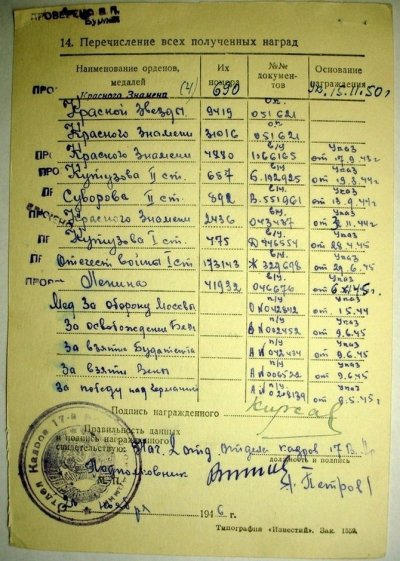 ПРОВЕРЕНО В.П.
14. Перечисление всех полученных наград
Наименование орденов, медалей
Их номера
№№ документов
Основание награждения
Красного Знамени (4) 690 Ук. 15.11.50г
Красной Звезды 9419 051621
Красного Знамени 31016 051621
Красного Знамени 4880 Указ от 17.9.43г
Кутузова II ст. 657 Б.192925 Указ от 19.3.44г
Суворова II ст. 892 В.551961 Указ от 13.9.44г
Красного Знамени 2436 043487 Указ 11.44г
Кутузова I ст. 475 Указ от 28.4.45
Отечест войны I ст 173143 Ж 329698 Указ от 29.6.45
Ленина 41932 046676 Указ
Мед За оборону Москвы п/у 042842 Указ от 1.5.44
За освобождение п/у 002452 Указ от 9.6.45
За взятие Будапешта п/у А № 042434 Указ от 9.6.45
За взятие Вены п/у А № 006522 Указ от 9.6.45
За победу над Германией п/у Указ от 9.5.45г
Подпись награжденного
Правильность данных
и подпись награжденного
свидетельствую: Нач. 2 отд отдела кадров 17 В.А
должность и подпись
Подполковник
М. П.
Петров
1946 г.
Типография «Известий». Зак. 1559.